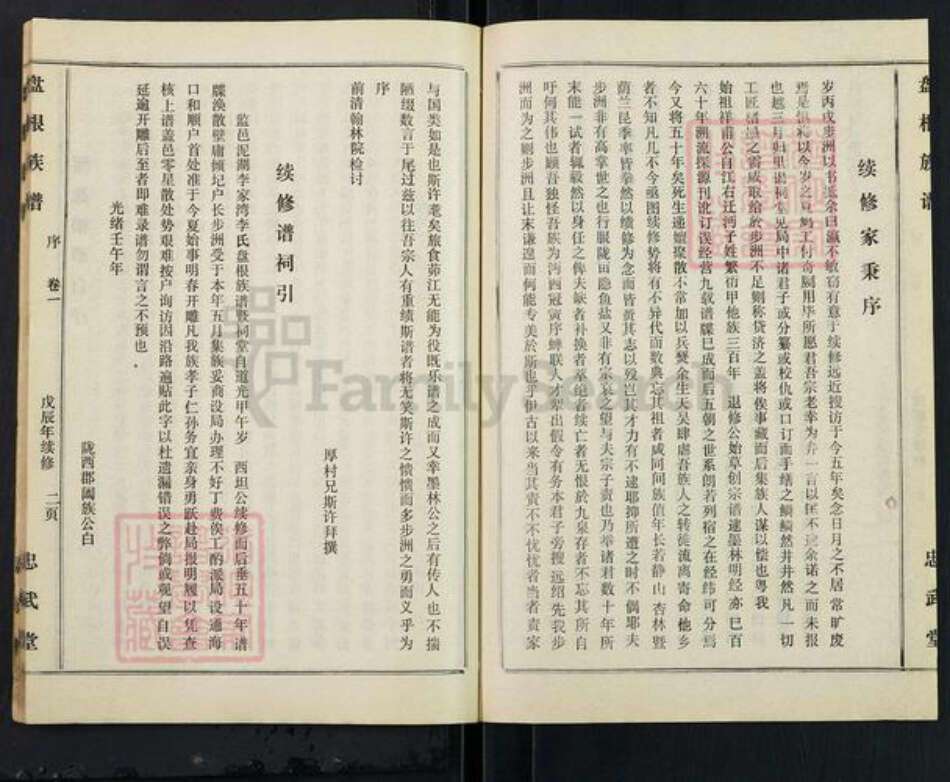 盘根族谱
忠武堂
续修家秉序
岁丙戌步洲以书抵余曰瀛不敏窃有意于续修远近搜访于今五年矣念日月之不居常旷废
是惧将以今岁之夏鸠工付剞劂用毕所愿君吾宗老幸为弁一言以匡不逮余诺之而未报
也越三月归里谒祠堂见局中诸君子或分纂或校仇或口订而手缮之鳞鳞然井井然凡一切
工匠糈之需咸取给於步洲不足则称贷济之盖将俟事蒇而后集族人谋以偿也粤我
始祖祥甫公自江右迁沔子姓繁衍甲他族三百年 退修公始草创宗谱逮墨林明经亦已百
六十年溯流探源刊讹订误经营九载谱牒已成而后五朝之世系朗若列宿之在经纬可分焉
今又将五十年矣死生递嬗聚散不常加以兵燹余生天吴肆虐吾族人之转徒流离寄命他乡
者不知凡几不今亟图续修势将有不异代而数典忘其祖者咸同间族值年长若静山杏林暨
荫兰昆季率皆拳然以续修为念而皆赍其志以殁岂其才力有不逮耶抑所遭之时不偶耶夫
步洲非有高掌世之也行服陇亩隐鱼盐又非有宗衮之望与夫宗子责也乃举诸君数十年所
未能一试者辄毅然以身任之俾夫缺者补换者萃绝者续亡者无恨於九泉存者不忘其所自
吁何其伟也顾吾独怪吾族为沔西冠寅序蝉联人才辈出假令有务本君子旁搜远绍先我步
洲而为之则步洲且让末谦遑而何能专美於斯也乎伊古以来当其责不不忧忧者当者责家
与国类如是也斯许耄矣旅食茆江无能为役既乐谱之成而又幸墨林公之后有传人也不揣
陋缀数言于尾过兹以往吾宗人有重绩斯谱者将无笑斯许之愦愦而多步洲之勇而义乎为
序
前清翰林院检讨
厚村兄斯许拜撰
续修谱祠引
监邑泥湖李家湾李氏盘根族谱暨祠堂自道光甲午岁 西坦公续修而后垂五十年谱
牒涣散壁庸倾圮户长步洲受于本年五月集族妥商设局办理不好丁费俟工酌派局设通海
口和顺户首处准于今夏始事明春开雕凡我族孝子仁孙务宜亲身勇跃赴局报明履以凭查
核上谱盖邑零星散处势艰难按户询访因沿路遍贴此字以杜遗漏错误之弊倘或观望自误
延逾开雕后至者即难录谱勿谓言之不预也
光绪壬午年
陇西郡阖族公白
盘根族谱
序
卷一
戊辰年续修
二页
忠武堂
FamilySearch